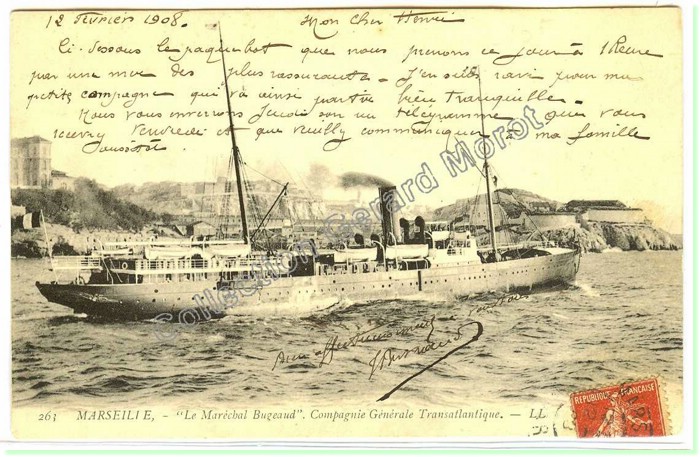 12 Février 1908. Mon Cher Henri
Ci-dessous le paquebot que nous prenons ce jour à 1 heure
par une mer des plus rassurante. J'en suis ravi pour ma
petite compagne qui va ainsi partir bien tranquille.
Nous vous enverrons Jeudi soir un télégramme que vous
recevrez Vendredi et que veuillez communiquer à ma famille
aussitôt
Collection Gérard Morot
Bien affectueusement à vous tous
263 MARSEILLE. - "Le Maréchal Bugeaud". Compagnie Générale Transatlantique. - LL
REPUBLIQUE FRANÇAISE